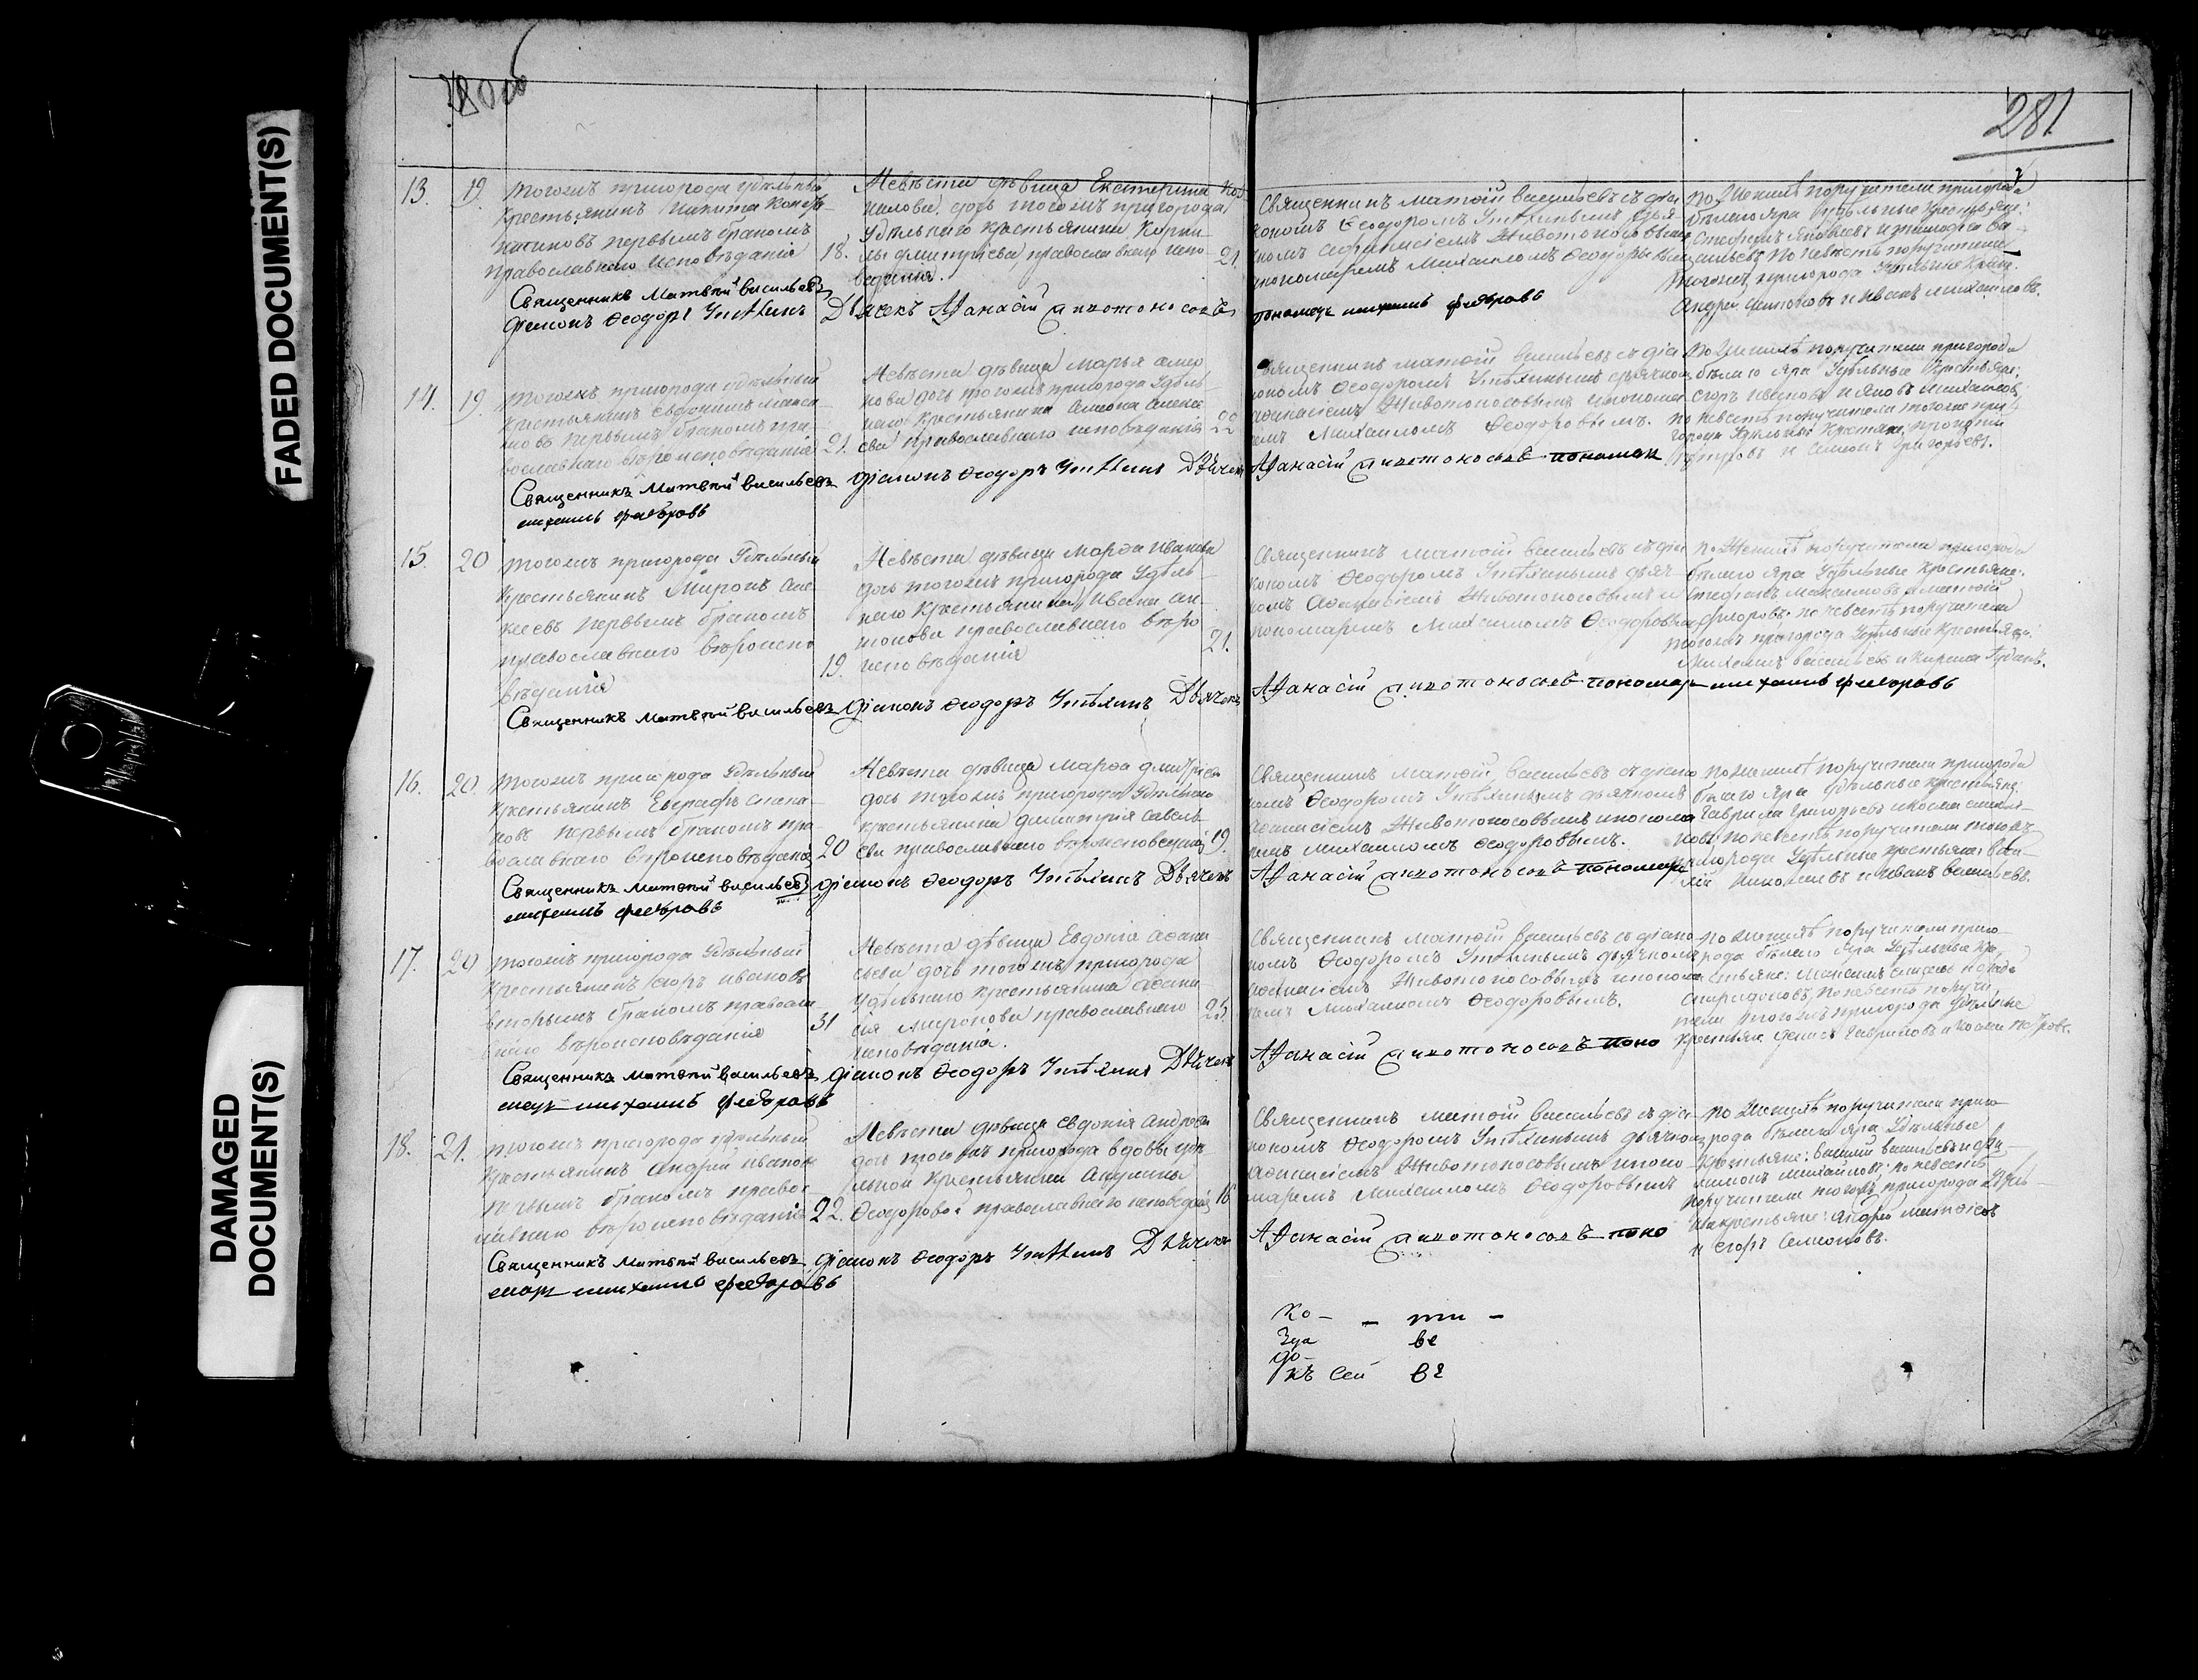 FADED DOCUMENT(S)
DAMAGED
DOCUMENT(S)
281
13. 19. тогожъ пригорода удѣльный
крестьянинъ Никита Конста-
нтиновъ первымъ бракомъ
православнаго исповѣданія 18.
Невѣста дѣвица Екатерина Кор-
нилова дочь тогожъ пригорода
удѣльнаго крестьянина Корни-
лы Дмитріева, православнаго испо- 21.
веданія.
Священникъ матфій васильевъ съ діа
кономъ Ѳеодоромъ Утѣхинымъ дья-
комъ Афанасіемъ Животоносовымъ
пономаремъ Михаиломъ Ѳеодоровымъ
По Женихѣ поручители пригорода
бѣлаго Яра Удѣльные крестьяне:
Стефанъ Яковлевъ и тимофей Ва-
сильевъ по невѣстѣ поручители
тогожъ пригорода Удѣльные Крест.
Андрей Филиповъ и Иванъ Михаиловъ.
Священникъ Матвѣй васильевъ
діаконъ Ѳеодоръ Утѣхинъ Дьячекъ Афанасій Животоносовъ пономарь михаилъ федоровъ
14. 19. Тогожъ пригорода удѣльный
Крестьянинъ Евдокимъ Макси-
мовъ первымъ бракомъ пра-
вославнаго вѣроисповѣданія 21.
Невѣста дѣвица Марья Семо
нова дочь тогожъ пригорода Удѣль-
наго Крестьянина Семона Алексе
ева православнаго исповѣданія 22
Священникъ матфій васильевъ съ діа
кономъ Ѳеодоромъ Утѣхинымъ дьячком
Афанасіемъ Животоносовымъ и понома
емъ Михаиломъ Ѳеодоровымъ.
По Женихѣ поручители пригорода
бѣлаго Яра Удѣльные Крестьяне:
Егоръ Ивановъ и Яковъ Михаиловъ
по невестѣ поручители тогоже при
города Удѣльные Крестьяне
Петровъ и Семонъ Григорьевъ.
Священникъ Матвѣй васильевъ діаконъ Ѳеодоръ Утѣхинъ Дьячекъ Афанасій Животоносовъ пономар
михаилъ федоровъ
15. 20 тогожъ пригорода Удѣльный
Крестьянинъ Миронъ Але-
ксеевъ первымъ бракомъ
православнаго вѣроиспо
вѣданія 19.
Невѣста дѣвица Марѳа Иванова
дочь тогожъ пригорода Удѣль-
наго Крестьянина Ивана Ан-
тонова православнаго вѣро 21.
исповѣданія
Священникъ матфій васильевъ съ діа
кономъ Ѳеодоромъ Утѣхинымъ дьяч-
комъ Афанасіемъ Животоносовымъ и
пономаремъ Михаиломъ Ѳеодоровым
По Женихѣ поручители пригорода
бѣлаго Яра Удѣльные Крестьяне:
Стефанъ Максимовъ и матфій
Федоровъ. по невѣстѣ поручители
тогожъ пригорода Удѣльные Крестьяне:
Михаилъ васильевъ и Кирила
Священникъ Матвѣй васильевъ діаконъ Ѳеодоръ Утѣхинъ Дьячекъ Афанасій Животоносовъ пономарь михаилъ федоровъ
16. 20. Тогожъ пригорода Удѣльный
крестьянинъ Евграфъ Степа-
новъ первымъ бракомъ пра-
вославнаго вѣроисповѣданія 20
Невѣста дѣвица Марѳа Дмитріева
дочь тогожъ пригорода Удѣльнаго
крестьянина Дмитрія Савель-
ева православнаго вѣроисповеданія 19.
Священникъ Матфій васильевъ съ діако
номъ Ѳеодоромъ Утѣхинымъ дьячкомъ
Афанасіемъ Животоносовымъ и понома
ремъ Михаиломъ Ѳеодоровымъ.
По Женихѣ поручители пригорода
бѣлаго Яра Удѣльные крестьяне:
Гаврила Григорьевъ и Косма
по невестѣ поручители тогожъ
пригорода Удѣльные крестьяне: Васи-
лій Николаевъ и Иванъ Васильевъ.
Священникъ Матвѣй васильевъ діаконъ Ѳеодоръ Утѣхинъ Дьячекъ Афанасій Животоносовъ пономарь
михаилъ федоровъ
17. 20 Тогожъ пригорода Удѣльный
Крестьянинъ Егоръ Ивановъ
вторымъ бракомъ правосла
внаго вѣроисповѣданія 31
Невѣста дѣвица Евдокія Афана
сьева дочь тогожъ пригорода
Удѣльнаго Крестьянина Афана-
сія Миронова православнаго 25.
исповѣданія.
Священникъ Матфій васильевъ съ діако
номъ Ѳеодоромъ Утѣхинымъ дьячкомъ
Афанасіемъ Животоносовымъ и понома
ремъ Михаиломъ Ѳеодоровымъ.
По Женихѣ поручители приго-
рода бѣлаго Яра Удѣльные Кре-
стьяне: Максимъ
Спиридоновъ, по невестѣ поручи
тели тогожъ пригорода Удѣльные
Крестьяне Денисъ Гавриловъ и Косма Петровъ.
Священникъ Матвѣй васильевъ діаконъ Ѳеодоръ Утѣхинъ Дьячекъ Афанасій Животоносовъ поно
марь михаилъ федоровъ
18. 21. тогожъ пригорода Удѣльный
Крестьянинъ Андрей Иванов
первымъ бракомъ правос-
лавнаго вѣроисповѣданія 22.
Невѣста дѣвица Евдокія Андреева
дочь тогожъ пригорода вдовы удѣ
льной Крестьянки Акулины
Ѳеодоровой православнаго исповеданія 16
Священникъ матфій васильевъ съ діа
кономъ Ѳеодоромъ Утѣхинымъ дьячком
Афанасіемъ Животоносовымъ и поно
маремъ Михаиломъ Ѳеодоровымъ
По Женихѣ поручители приго
рода бѣлаго Яра Удѣльные
Крестьяне: василій васильевъ и Фи-
лимонъ Михайловъ; по невестѣ
поручители тогожъ пригорода Удѣль-
ные крестьяне: Андрей Матвѣевъ
и Егоръ Семеоновъ.
Священникъ Матвѣй васильевъ діаконъ Ѳеодоръ Утѣхинъ Дьячекъ Афанасій Животоносовъ поно
марь михаилъ федоровъ
ко - - ти -
ве
до-
къ Сей ве